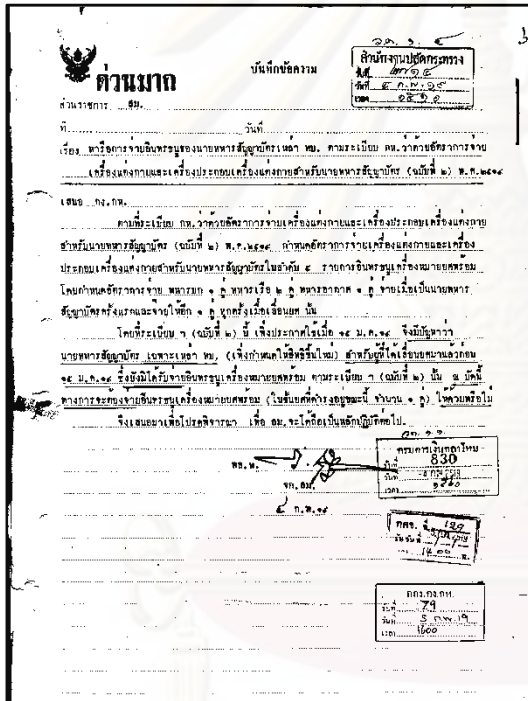 ด่วนมาก
บันทึกข้อความ
สำนักงานปลัดกระทรวง
วันที่ ๔ ก.พ. ๑๙
เวลา
ส่วนราชการ สม.
ที่ วันที่
เรื่อง หารือการจ่ายอินทรธนูของนายทหารสัญญาบัตรเหล่า ทบ. ตามระเบียบ กห.ว่าด้วยอัตราการจ่าย
เครื่องแต่งกายและเครื่องประกอบเครื่องแต่งกายสำหรับนายทหารสัญญาบัตร (ฉบับที่ ๒) พ.ศ.๒๕๑๙
เสนอ กง.กห.
ตามที่ระเบียบ กห.ว่าด้วยอัตราการจ่ายเครื่องแต่งกายและเครื่องประกอบเครื่องแต่งกาย
สำหรับนายทหารสัญญาบัตร (ฉบับที่ ๒) พ.ศ.๒๕๑๙ กำหนดอัตราการจ่ายเครื่องแต่งกายและเครื่อง
ประกอบเครื่องแต่งกายสำหรับนายทหารสัญญาบัตรในลำดับ ๕ รายการอินทรธนูเครื่องหมายยศพร้อม
โดยกำหนดอัตราการจ่าย ทหารบก ๑ คู่ ทหารเรือ ๒ คู่ ทหารอากาศ ๑ คู่ จ่ายเมื่อเป็นนายทหาร
สัญญาบัตรครั้งแรกและจ่ายให้อีก ๑ คู่ ทุกครั้งเมื่อเลื่อนยศ นั้น
โดยที่ระเบียบ ฯ (ฉบับที่ ๒) นี้ เพิ่งประกาศใช้เมื่อ ๑๕ ม.ค.๑๙ จึงมีปัญหาว่า
นายทหารสัญญาบัตร เฉพาะเหล่า ทบ. (เพิ่งกำหนดให้สิทธิขึ้นใหม่) สำหรับผู้ที่ได้เลื่อนยศมาแล้วก่อน
๑๕ ม.ค.๑๙ ซึ่งยังมิได้รับจ่ายอินทรธนูเครื่องหมายยศพร้อม ตามระเบียบ ฯ (ฉบับที่ ๒) นั้น ณ บัดนี้
ทางการจะต้องจ่ายอินทรธนูเครื่องหมายยศพร้อม (ในชั้นยศที่ดำรงอยู่ขณะนี้ จำนวน ๑ คู่) ให้ด้วยหรือไม่
จึงเสนอมาเพื่อโปรดพิจารณา เพื่อ สม.จะได้ถือเป็นหลักปฏิบัติต่อไป.
พล.ท.
จก.สม.
๔ ก.พ.๑๙
กรมการเงินกลาโหม
830
วันที่
เวลา
129
14 00
กกง.กง.กห.
79
วันที่ 5 ก.พ. 19
เวลา 1600